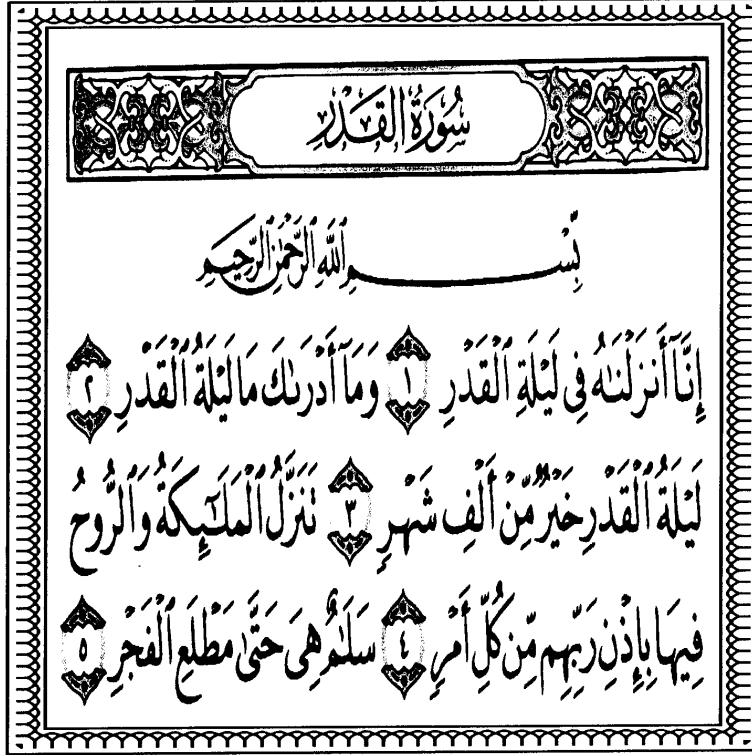 سُورَةُ الْقَدْرِ
بِّسْمِ ٱللَّهِ ٱلرَّحْمَٰنِ ٱلرَّحِيمِ
إِنَّآ أَنزَلْنَٰهُ فِى لَيْلَةِ ٱلْقَدْرِ ١ وَمَآ أَدْرَىٰكَ مَا لَيْلَةُ ٱلْقَدْرِ ٢
لَيْلَةُ ٱلْقَدْرِ خَيْرٌ مِّنْ أَلْفِ شَهْرٍ ٣ تَنَزَّلُ ٱلْمَلَٰٓئِكَةُ وَٱلرُّوحُ
فِيهَا بِإِذْنِ رَبِّهِم مِّن كُلِّ أَمْرٍ ٤ سَلَٰمٌ هِىَ حَتَّىٰ مَطْلَعِ ٱلْفَجْرِ ٥